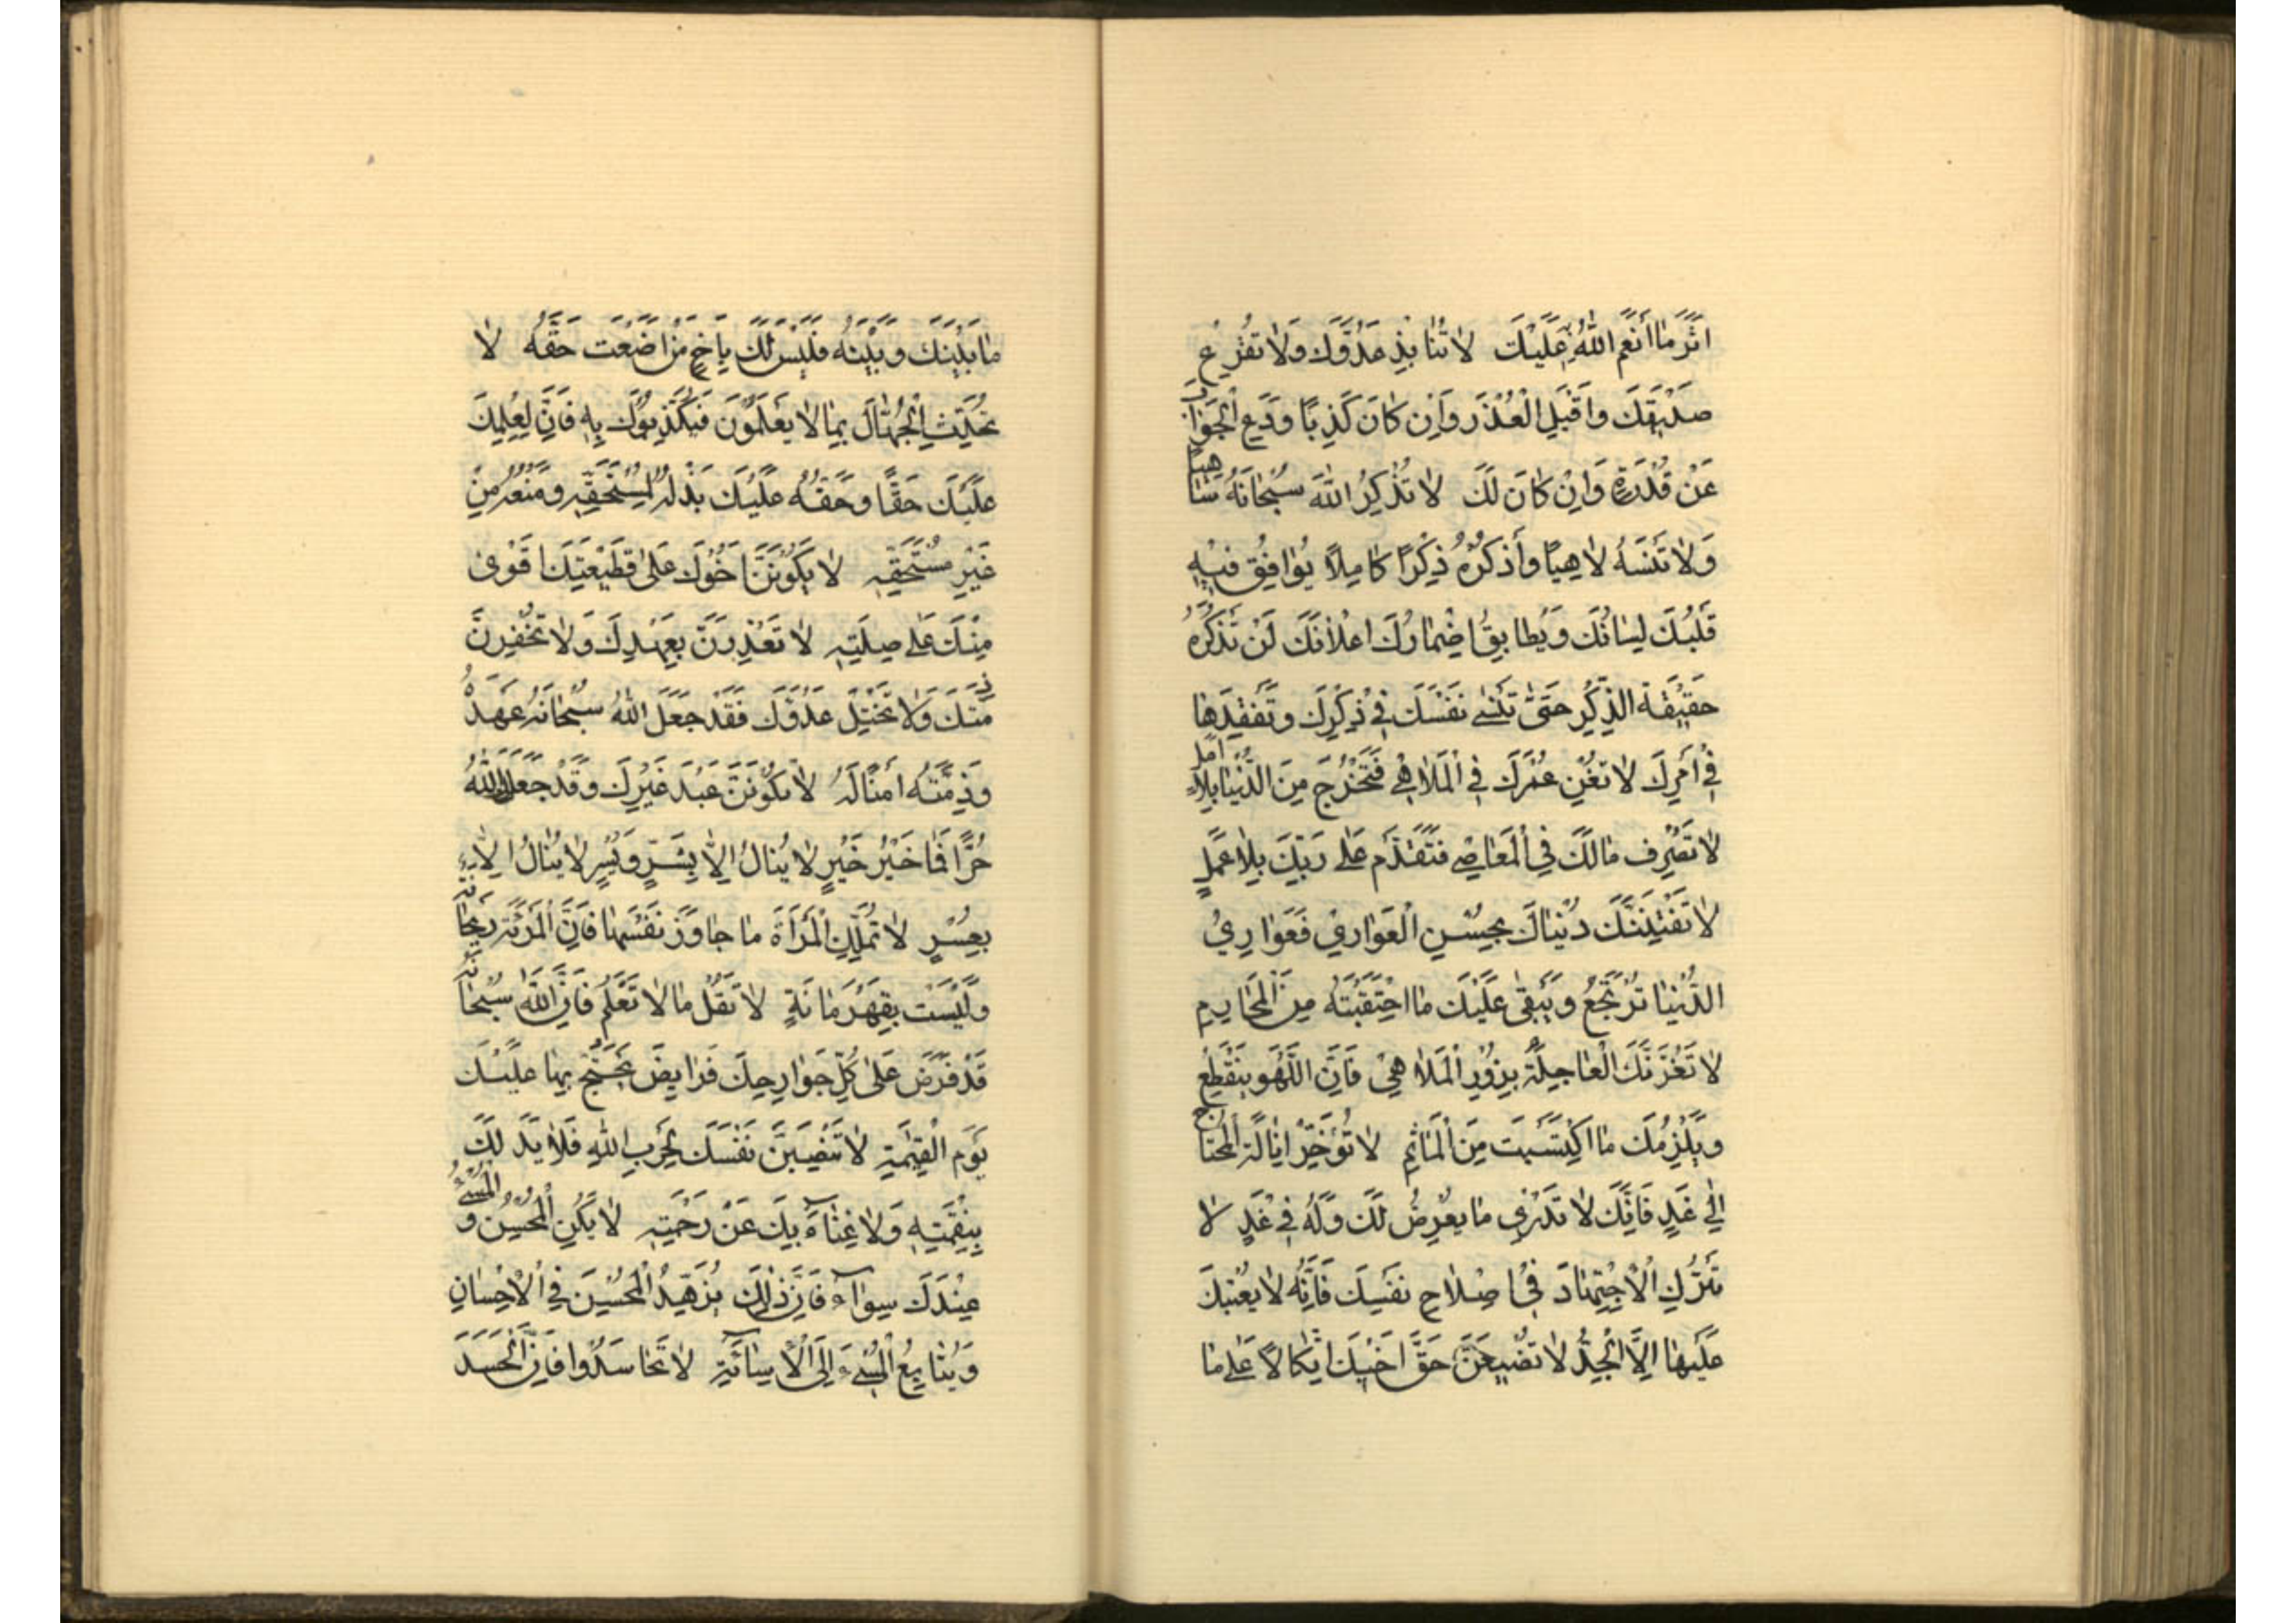 اثَرُ مَا أَنْعَمَ اللّٰهُ عَلَيْكَ لا تُنابِذْ عَدُوَّكَ وَلا تُقَرِّعْ
صَدِيقَكَ وَاقْبَلِ الْعُذْرَ وَإِنْ كانَ كَذِبًا وَدَعِ الْجَوابَ
عَنْ قُدْرَةٍ وَإِنْ كانَ لَكَ لا تَذْكُرِ اللّٰهَ سُبْحانَهُ سَاهِيًا
وَلا تَنْسَهُ لاهِيًا وَأَذْكُرْهُ ذِكْرًا كامِلًا يُوافِقُ فِيهِ
قَلْبُكَ لِسانَكَ وَيُطابِقُ إِضْمارُكَ إِعْلانَكَ لَنْ تَذْكُرَهُ
حَقِيقَةَ الذِّكْرِ حَتّىٰ تَنْسىٰ نَفْسَكَ فِي ذِكْرِكَ وَتَفْقِدَها
فِي أَمْرِكَ لا تُفْنِ عُمْرَكَ فِي الْمَلاهِي فَتَخْرُجَ مِنَ الدُّنْيا بِلا أَمَلٍ
لا تَصْرِفْ مالَكَ فِي الْمَعاصِي فَتَقْدَمَ عَلىٰ رَبِّكَ بِلا عَمَلٍ
لا تَفْتِنَنَّكَ دُنْياكَ بِحُسْنِ الْعَوارِي فَعَوارِيُ
الدُّنْيا تُرْتَجَعُ وَيَبْقىٰ عَلَيْكَ مَا احْتَقَبْتَهُ مِنَ الْمَحارِمِ
لا تَغُرَّنَّكَ الْعاجِلَةُ بِزُورِ الْمَلاهِي فَإِنَّ اللَّهْوَ يَنْقَطِعُ
وَيَلْزَمُكَ مَا اكْتَسَبْتَ مِنَ الْمَآثِمِ لا تُؤَخِّرْ إِنالَةَ الْمُحْتاجِ
إِلىٰ غَدٍ فَإِنَّكَ لا تَدْرِي ما يَعْرِضُ لَكَ وَلَهُ فِي غَدٍ لا
تَتْرُكِ الْاِجْتِهادَ فِي إِصْلاحِ نَفْسِكَ فَإِنَّهُ لا يُعِينُكَ
عَلَيْها إِلَّا الْجِدُّ لا تُضَيِّعَنَّ حَقَّ أَخِيكَ اتِّكالًا عَلىٰ ما
ما بَيْنَكَ وَبَيْنَهُ فَلَيْسَ لَكَ بِأَخٍ مَنْ أَضَعْتَ حَقَّهُ لا
تُحَدِّثِ الْجُهّالَ بِما لا يَعْلَمُونَ فَيُكَذِّبُوكَ بِهِ فَإِنَّ لِعِلْمِكَ
عَلَيْكَ حَقًّا وَحَقُّهُ عَلَيْكَ بَذْلُهُ لِمُسْتَحِقِّهِ وَمَنْعُهُ مِنْ
غَيْرِ مُسْتَحِقِّهِ لا يَكُونَنَّ أَخُوكَ عَلىٰ قَطِيعَتِكَ أَقْوىٰ
مِنْكَ عَلىٰ صِلَتِهِ لا تَغْدِرَنَّ بِعَهْدِكَ وَلا تُخْفِرَنَّ
ذِمَّتَكَ وَلا تَخْتِلْ عَدُوَّكَ فَقَدْ جَعَلَ اللّٰهُ سُبْحانَهُ عَهْدَهُ
وَذِمَّتَهُ أَمْنًا لَهُ لا تَكُونَنَّ عَبْدَ غَيْرِكَ وَقَدْ جَعَلَكَ اللّٰهُ
حُرًّا فَما خَيْرُ خَيْرٍ لا يُنالُ إِلّا بِشَرٍّ وَيُسْرٍ لا يُنالُ إِلّا
بِعُسْرٍ لا تُمَلِّكِ الْمَرْأَةَ ما جاوَزَ نَفْسَها فَإِنَّ الْمَرْئَةَ رَيْحانَةٌ
وَلَيْسَتْ بِقَهْرَمانَةٍ لا تَقُلْ ما لا تَعْلَمُ فَإِنَّ اللّٰهَ سُبْحانَهُ
قَدْ فَرَضَ عَلىٰ كُلِّ جَوارِحِكَ فَرايِضَ يَحْتَجُّ بِها عَلَيْكَ
يَوْمَ الْقِيٰمَةِ لا تَنْصِبَنَّ نَفْسَكَ لِحَرْبِ اللّٰهِ فَلا يَدَ لَكَ
بِنِقْمَتِهِ وَلا غِناءَ بِكَ عَنْ رَحْمَتِهِ لا يَكُنِ الْمُحْسِنُ وَالْمُسِيءُ
عِنْدَكَ سَواءٌ فَإِنَّ ذٰلِكَ يُزَهِّدُ الْمُحْسِنَ فِي الْإِحْسانِ
وَيُتابِعُ الْمُسِيءَ إِلَى الْإِساءَةِ لا تَحاسَدُوا فَإِنَّ الْحَسَدَ